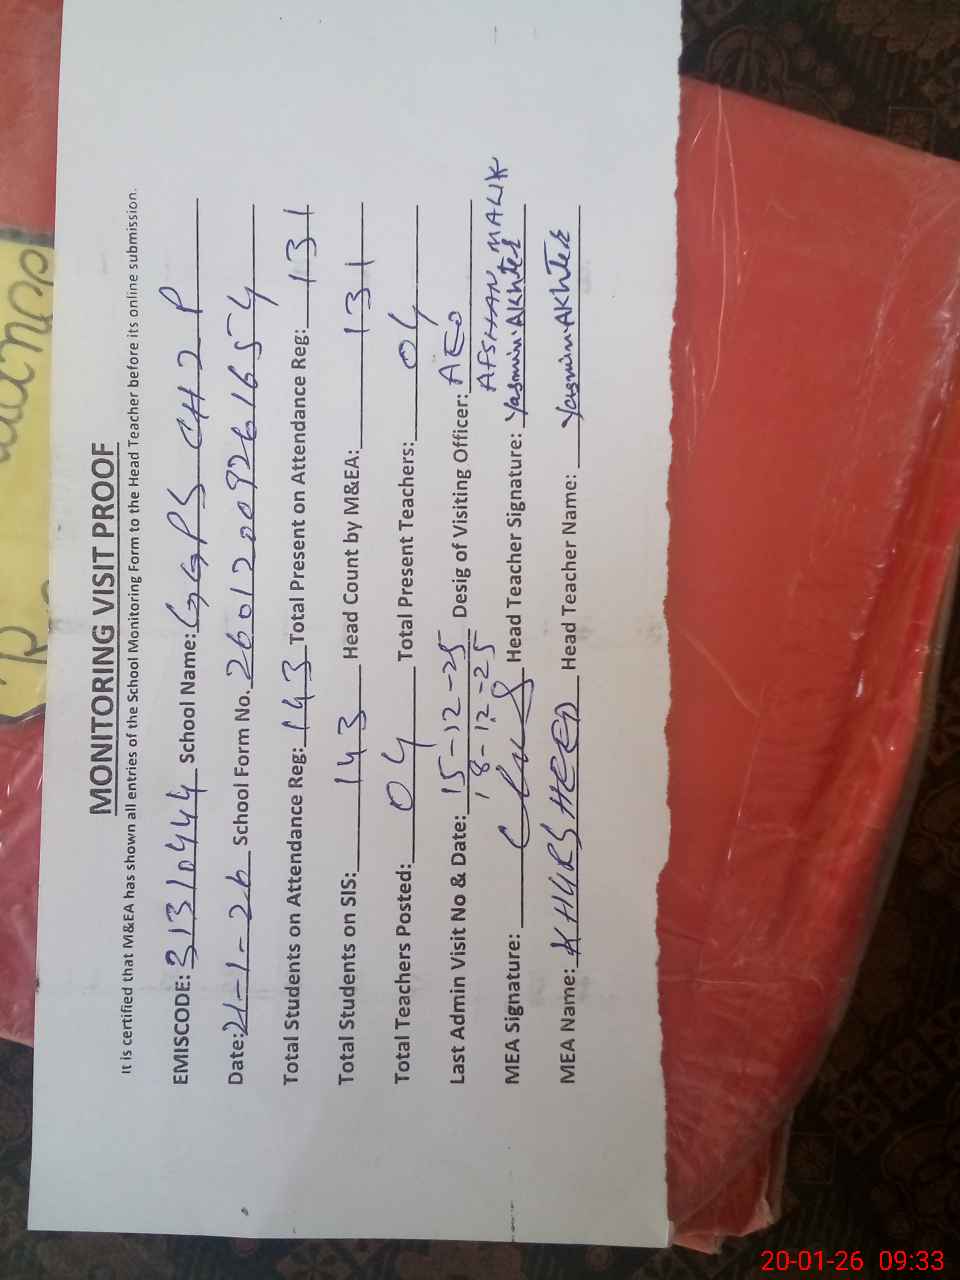 MONITORING VISIT PROOF
It is certified that M&EA has shown all entries of the School Monitoring Form to the Head Teacher before its online submission.
EMISCODE: 31310444 School Name: GGPS CH 2 P
Date: 21-1-26 School Form No. 2601200926 1654
Total Students on Attendance Reg: 143 Total Present on Attendance Reg: 131
Total Students on SIS: 143 Head Count by M&EA: 131
Total Teachers Posted: 04 Total Present Teachers: 04
Last Admin Visit No & Date: 15-12-25 Desig of Visiting Officer: AEO
18-12-25 AFSHAN MALIK
MEA Signature: Head Teacher Signature: Yasmin Akhter
MEA Name: KHURSHEED Head Teacher Name: Yasmin Akhter
20-01-26 09:33